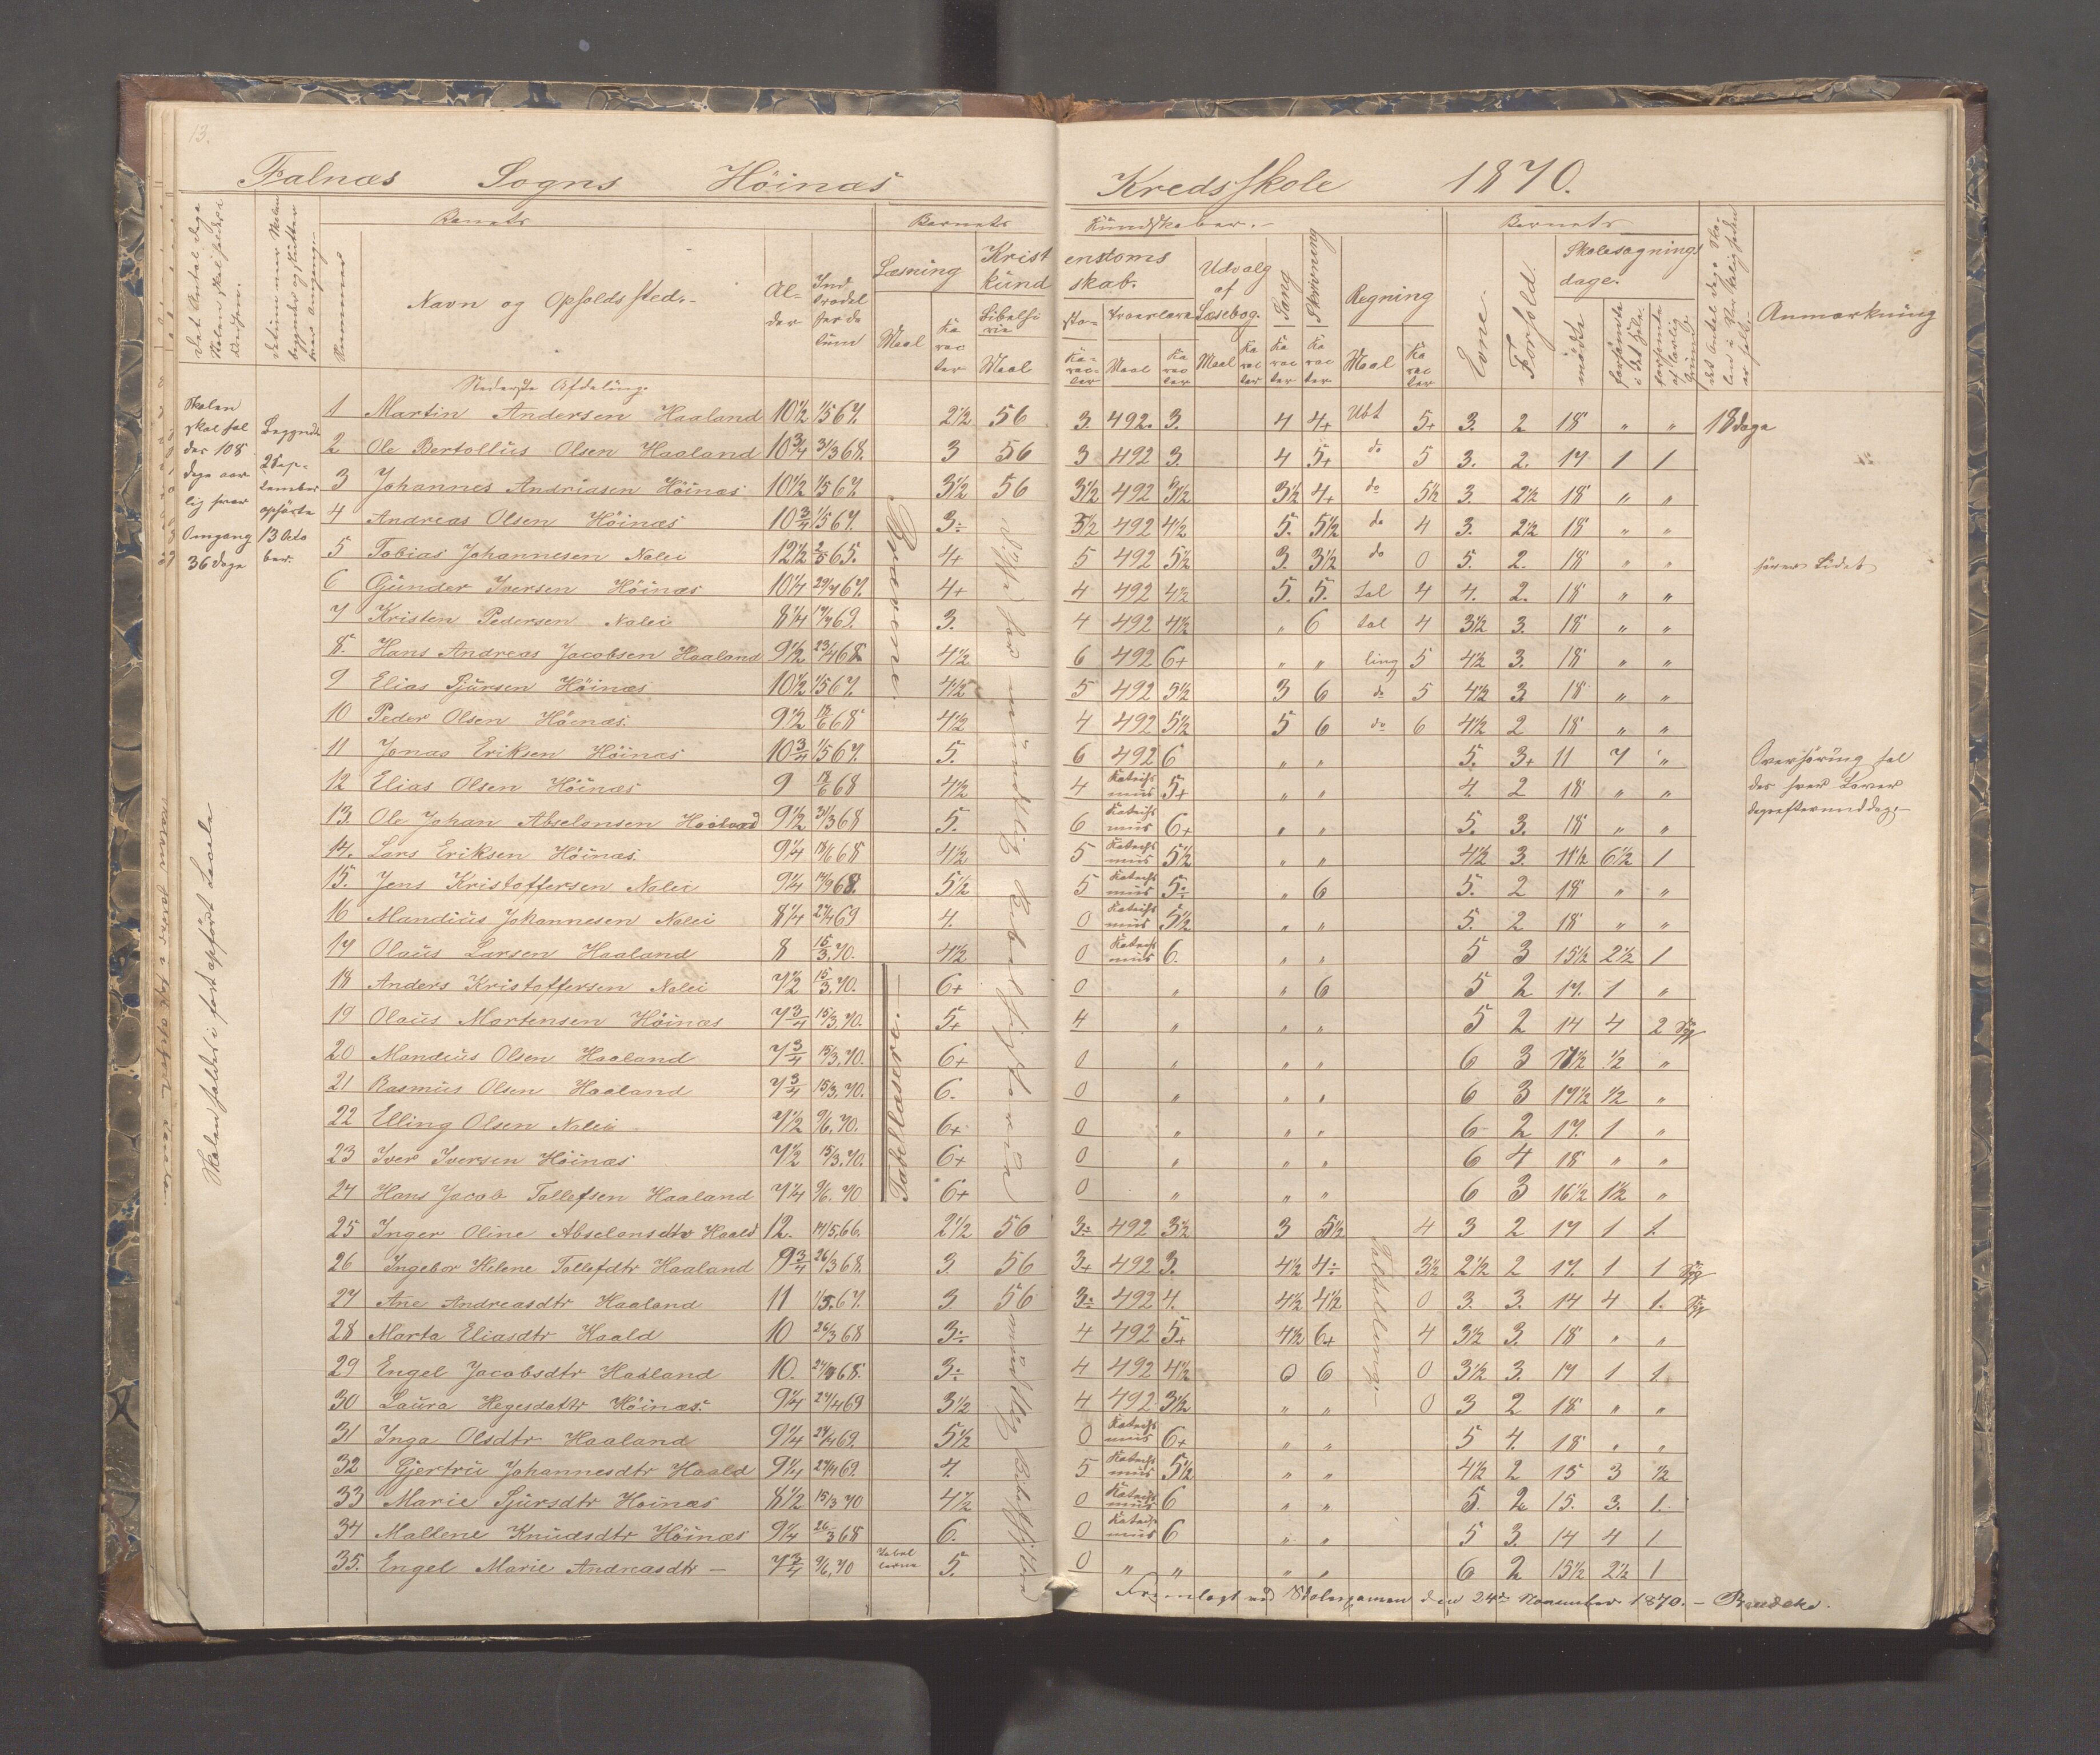 13.
Falnæs Sogns Höinæs Kredsskole 1870.
Barnets Barnets Kundskaber. Barnets
Læsning Kristendomskundskab. Udvalg af Læsebog. Sang Skrivning Regning Evne. Forhold. Skolesøgningsdage. Anmærkning
Nummer Navn og Opholdssted. Alder Indtrædelsesdatum Maal Karacter Bibelhistorie Maal Karacter Troeslære Maal Karacter Maal Karacter Karacter Karacter Maal Karacter mødte forsømte i det Hele forsømte af lovlig Grund
Nederste Afdeling.
Skolen skal holdes 108 dage aarlig hver Omgang 36 dage
Begyndte 2 September ophørte 13 October.
Skolen holdes i fast opført Locale
1 Martin Andersen Haaland 10½ 1/5 67. 2½ 56 3. 492. 3. 4 4+ Ubt 5+ 3. 2 18 " " 18 dage
2 Ole Bertollüs Olsen Haaland 10¾ 31/3 68. 3 56 3 492 3. 4 5+ do 5 3. 2. 17 1 1
3 Johannes Andriasen Höinæs 10½ 1/5 67. 3½ 56 3½ 492 3½ 3½ 4+ do 5½ 3. 2½ 18 " "
4 Andreas Olsen Höinæs 10¾ 1/5 67. 3÷ 3½ 492 4½ 5. 5½ do 4 3. 2½ 18 " "
5 Tobias Johannesen Nalei 12½ 2/5 65. 4+ 5 492 5½ 3. 3½ do 0 5. 2. 18 " " hører Lidet
6 Günder Iversen Höinæs 10¼ 29/4 67. 4+ 4 492 4½ 5. 5. tal 4 4. 2. 18 " "
7 Kristen Pedersen Nalei 8¼ 69. 3. 4 492 4½ " 6 tal 4 3½ 3. 18 " "
8. Hans Andreas Jacobsen Haaland 9½ 23/4 68 4½ 6 492 6+ " " ling 5 4½ 3. 18 " "
9 Elias Sjursen Höinæs 10½ 1/5 67. 4½ 5 492 5½ 3 6 do 5 4½ 3 18 " "
10 Peder Olsen Höinæs. 9½ 18/6 68 4½ 4 492 5½ 5 6 do 6 4½ 2 18 " "
11 Jonas Eriksen Höinæs 10¾ 1/5 67. 5. 6 492 6 " " 5. 3+ 11 7 "
12 Elias Olsen Höinæs 9 18/6 68 4½ 4 Katechismus 5+ " " 4. 2 18 " "
13. Ole Johan Abselonsen Haaland 9½ 31/3 68 5. 6 Katechismus 6+ " " 5. 3. 18 " "
14. Lars Eriksen Höinæs. 9¼ 18/6 68 4½ 5 Katechismus 5½ " " 4½ 3. 11½ 6½ 1
15. Jens Kristoffersen Nalei 9¼ 68. 5½ 5 Katechismus 5÷ " 6 5. 2 18 " "
16 Mandius Johannesen Nalei 8¼ 27/4 69 4. 0 Katechismus 5½ " " 5. 2 18 " "
17 Olaüs Larsen Haaland 8 15/3 70. 4½ 0 Katechismus 6. " " 5 3 15½ 2½ 1
18 Anders Kristoffersen Nalei 7½ 15/3 70. 6+ 0 " " 6 5 2 17. 1 "
19 Olaüs Mortensen Höinæs 7¾ 15/3 70. 5+ 4 " " " 5 2 14 4 2 Syg
20 Mandius Olsen Haaland 7¾ 15/3 70. 6+ 0 " " " 6 3 17½ ½ "
21 Rasmüs Olsen Haaland 7¾ 15/3 70. 6. 0 " " " 6 3 17½ ½ "
22 Elling Olsen Nalei 7½ 9/6 70. 6+ 0 " " " 6 2 17. 1 "
23 Iver Iversen Höinæs 7½ 15/3 70. 6+ 0 " " " 6 4 18 " "
24 Hans Jacob Tollefsen Haaland 7¼ 9/6 70 6+ 0 " " " 6 3 16½ 1½ "
25 Inger Oline Abselonsdtr Haald 12. 17/5 66. 2½ 56 3÷ 492 3½ 3 5½ 4 3 2 17 1 1.
26 Ingebor Helene Tollefdtr Haaland 9¾ 26/3 68. 3 56 3+ 492 3. 4½ 4÷ 3½ 2½ 2 17. 1 1 Syg
27 Ane Andreasdtr Haaland 11 1/5 67. 3 56 3÷ 492 4. 4½ 4½ 0 3. 3. 14 4 1. Syg
28 Marta Eliasdtr Haald 10 26/3 68 3÷ 4 492 5+ 4½ 6+ 4 3½ 3. 18 " "
29 Engel Jacobsdtr Haaland 10. 68. 3÷ 4 492 4½ 0 6 0 3½ 3. 17 1 1
30 Laura Hegesdattr Höinæs. 9¼ 27/4 69 3½ 4 492 3½ " " 0 3 2 18 " "
31 Inga Olsdtr Haaland 9¼ 27/4 69. 5½ 0 Katechismus 6+ " " 5 4. 18 " "
32 Gjertrü Johannesdtr Haald 9¼ 27/4 69. 4. 5 Katechismus 5½ " " 4½ 2 15 3 ½
33 Marie Sjursdtr Höinæs 8½ 15/3 70 4½ 0 Katechismus 6 " " 5. 2 15. 3. 1.
34 Maltene Knudsdtr Höinæs 9¼ 26/3 68 6. 0 Katechismus 6 " " 5 3. 14 4 1
35. Engel Marie Andreasdtr — 7¾ 9/6 70 5. 0 " " " " 6 2 15½ 2½ 1
Tabellæsere.
mündtlig Bibelhistorie
Tabellæsning
Overhøring holdes hver Løverdagseftermiddag.
Fremlagt ved Skolexamen den 24de November 1870. —